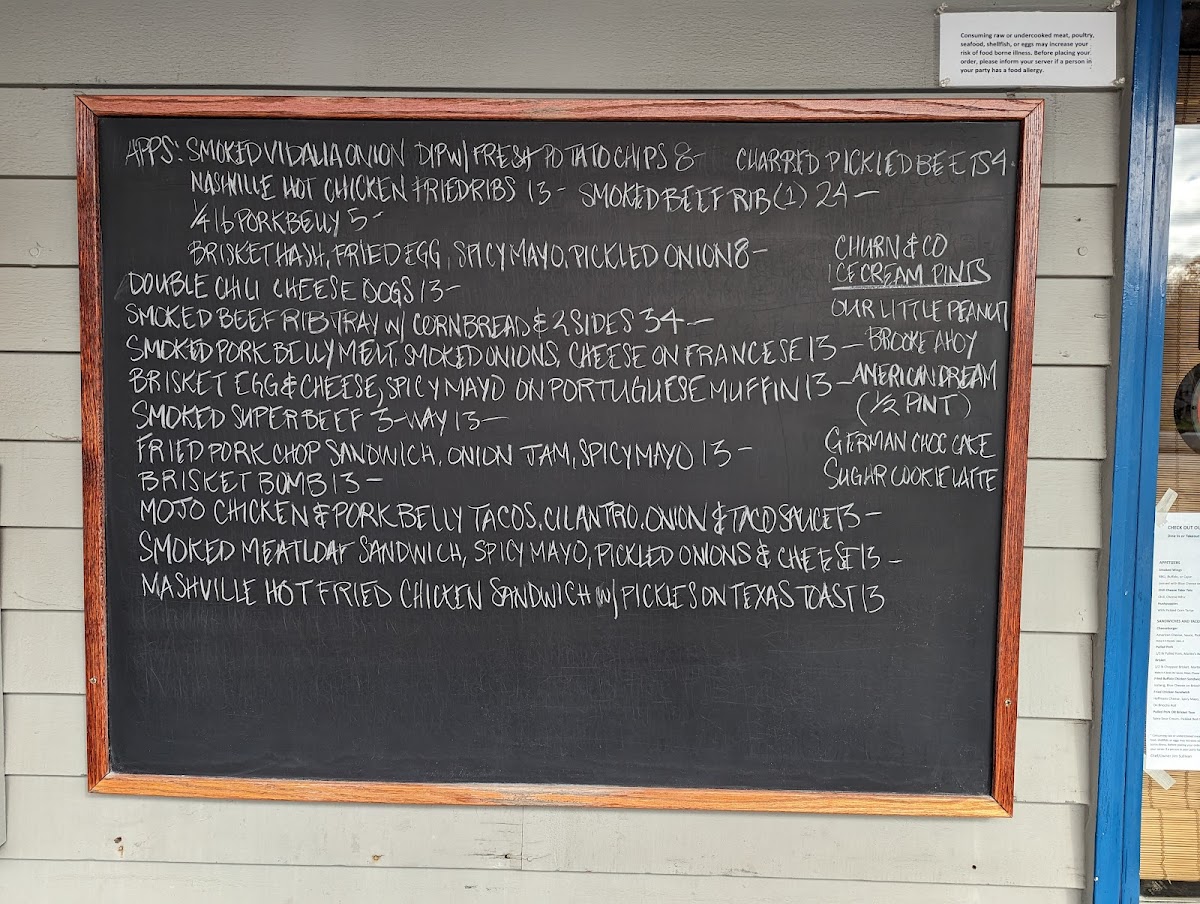 Consuming raw or undercooked meat, poultry,
seafood, shellfish, or eggs may increase your
risk of food borne illness. Before placing your
order, please inform your server if a person in
your party has a food allergy.
APPS: SMOKED VIDALIA ONION DIP W/ FRESH POTATO CHIPS 8- CHARRED PICKLED BEETS 4-
NASHVILLE HOT CHICKEN FRIED RIBS 13- SMOKED BEEF RIB (1) 24-
1/4 lb PORK BELLY 5-
BRISKET HASH, FRIED EGG, SPICY MAYO, PICKLED ONION 8-
DOUBLE CHILI CHEESE DOGS 13-
SMOKED BEEF RIB TRAY W/ CORNBREAD & 2 SIDES 34-
SMOKED PORK BELLY MELT, SMOKED ONIONS, CHEESE ON FRANCESE 13-
BRISKET EGG & CHEESE, SPICY MAYO ON PORTUGUESE MUFFIN 13-
SMOKED SUPER BEEF 3-WAY 13-
FRIED PORK CHOP SANDWICH, ONION JAM, SPICY MAYO 13-
BRISKET BOMB 13-
MOJO CHICKEN & PORK BELLY TACOS, CILANTRO, ONION & TACO SAUCE 13-
SMOKED MEATLOAF SANDWICH, SPICY MAYO, PICKLED ONIONS & CHEESE 13-
NASHVILLE HOT FRIED CHICKEN SANDWICH W/ PICKLES ON TEXAS TOAST 13
CHURN & CO
ICE CREAM PINTS
OUR LITTLE PEANUT
BROOKE AHOY
AMERICAN DREAM
(1/2 PINT)
GERMAN CHOC CAKE
SUGAR COOKIE LATTE
CHECK OUT
APPETIZERS